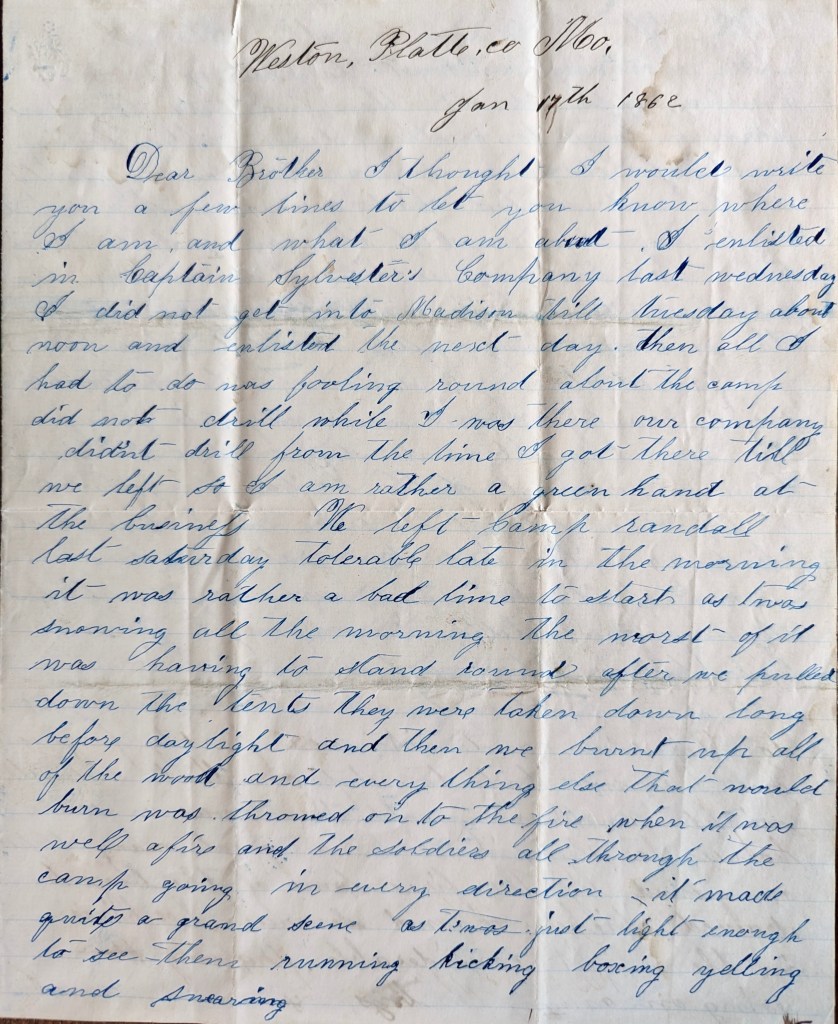 Weston, Platte, co Mo,
Jan 17th 1862
Dear Brother I thought I would write
you a few lines to let you know where
I am, and what I am about. I enlisted
in Captain Sylvester's Company last wednesday
I did not get into Madison till tuesday about
noon and enlisted the next day. then all I
had to do was fooling round about the camp
did not drill while I was there our company
didnt drill from the time I got there till
we left so I am rather a green hand at
the business We left Camp randall
last saturday tolerable late in the morning
it was rather a bad time to start as twas
snowing all the morning the worst of it
was having to stand round after we pulled
down the tents they were taken down long
before daylight and then we burnt up all
of the wood and every thing else that would
burn was throwed on to the fire when it was
well afire and the soldiers all through the
camp going in every direction it made
quite a grand scene as twas just light enough
to see them running kicking boxing yelling
and swearing